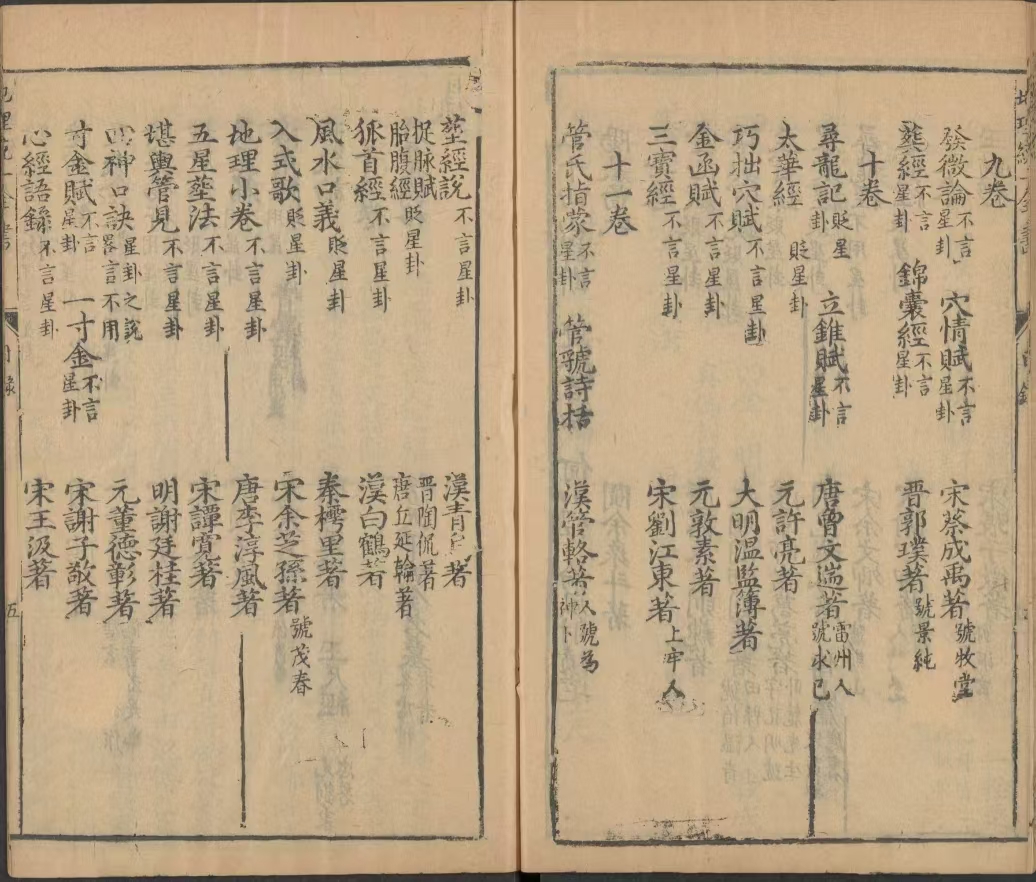 九卷
發微論不言星卦 穴情賦不言星卦 宋蔡成禹著號牧堂
葬經不言星卦 錦囊經不言星卦 晋郭璞著號景純
十卷
尋龍記貶星卦 立錐賦不言星卦 唐曾文遄著雷州人號求己
太華經 貶星卦 元許亮著
巧拙穴賦不言星卦 大明溫監簿著
金函賦不言星卦 元敦素著
三寶經不言星卦 宋劉江東著上牢人
十一卷
管氏指蒙不言星卦 管虢詩括 漢管輅著人號為神卜
葬經說不言星卦 漢青
捉脉賦 晋陶侃著
胎腹經貶星卦 唐丘延翰著
狐首經不言星卦 漢白鶴著
風水口義貶星卦 秦樗里著
入式歌貶星卦 宋余芝孫著號茂春
地理小卷不言星卦 唐李淳風著
五星葬法不言星卦 宋譚寬著
堪輿管見不言星卦 明謝廷桂著
四神口訣星卦之說畧言不用 元董德彰著
寸金賦不言星卦 一寸金不言星卦 宋謝子敬著
心經語錄不言星卦 宋王汲著
目錄
五